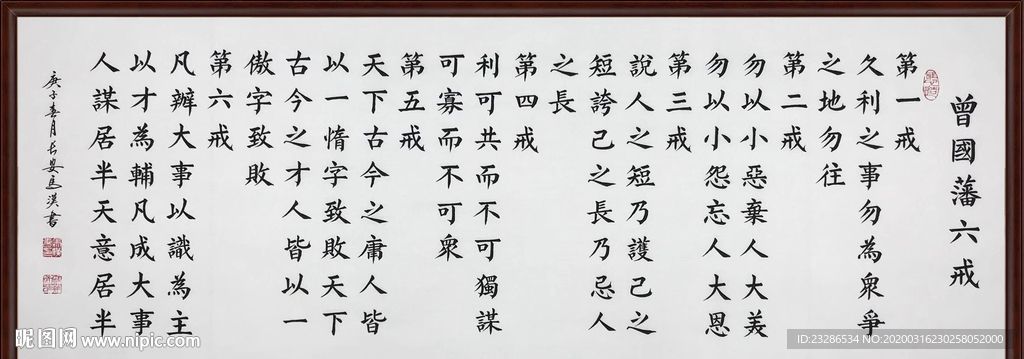 曾國藩六戒
第一戒
久利之事勿為衆爭
之地勿往
第二戒
勿以小惡棄人大美
勿以小怨忘人大恩
第三戒
說人之短乃護己之
短誇己之長乃忌人
之長
第四戒
利可共而不可獨謀
可寡而不可衆
第五戒
天下古今之庸人皆
以一惰字致敗天下
古今之才人皆以一
傲字致敗
第六戒
凡辦大事以識為主
以才為輔凡成大事
人謀居半天意居半
庚子春月長安馬漢書
昵图网 www.nipic.com
ID:23286534 NO:20200316230258052000